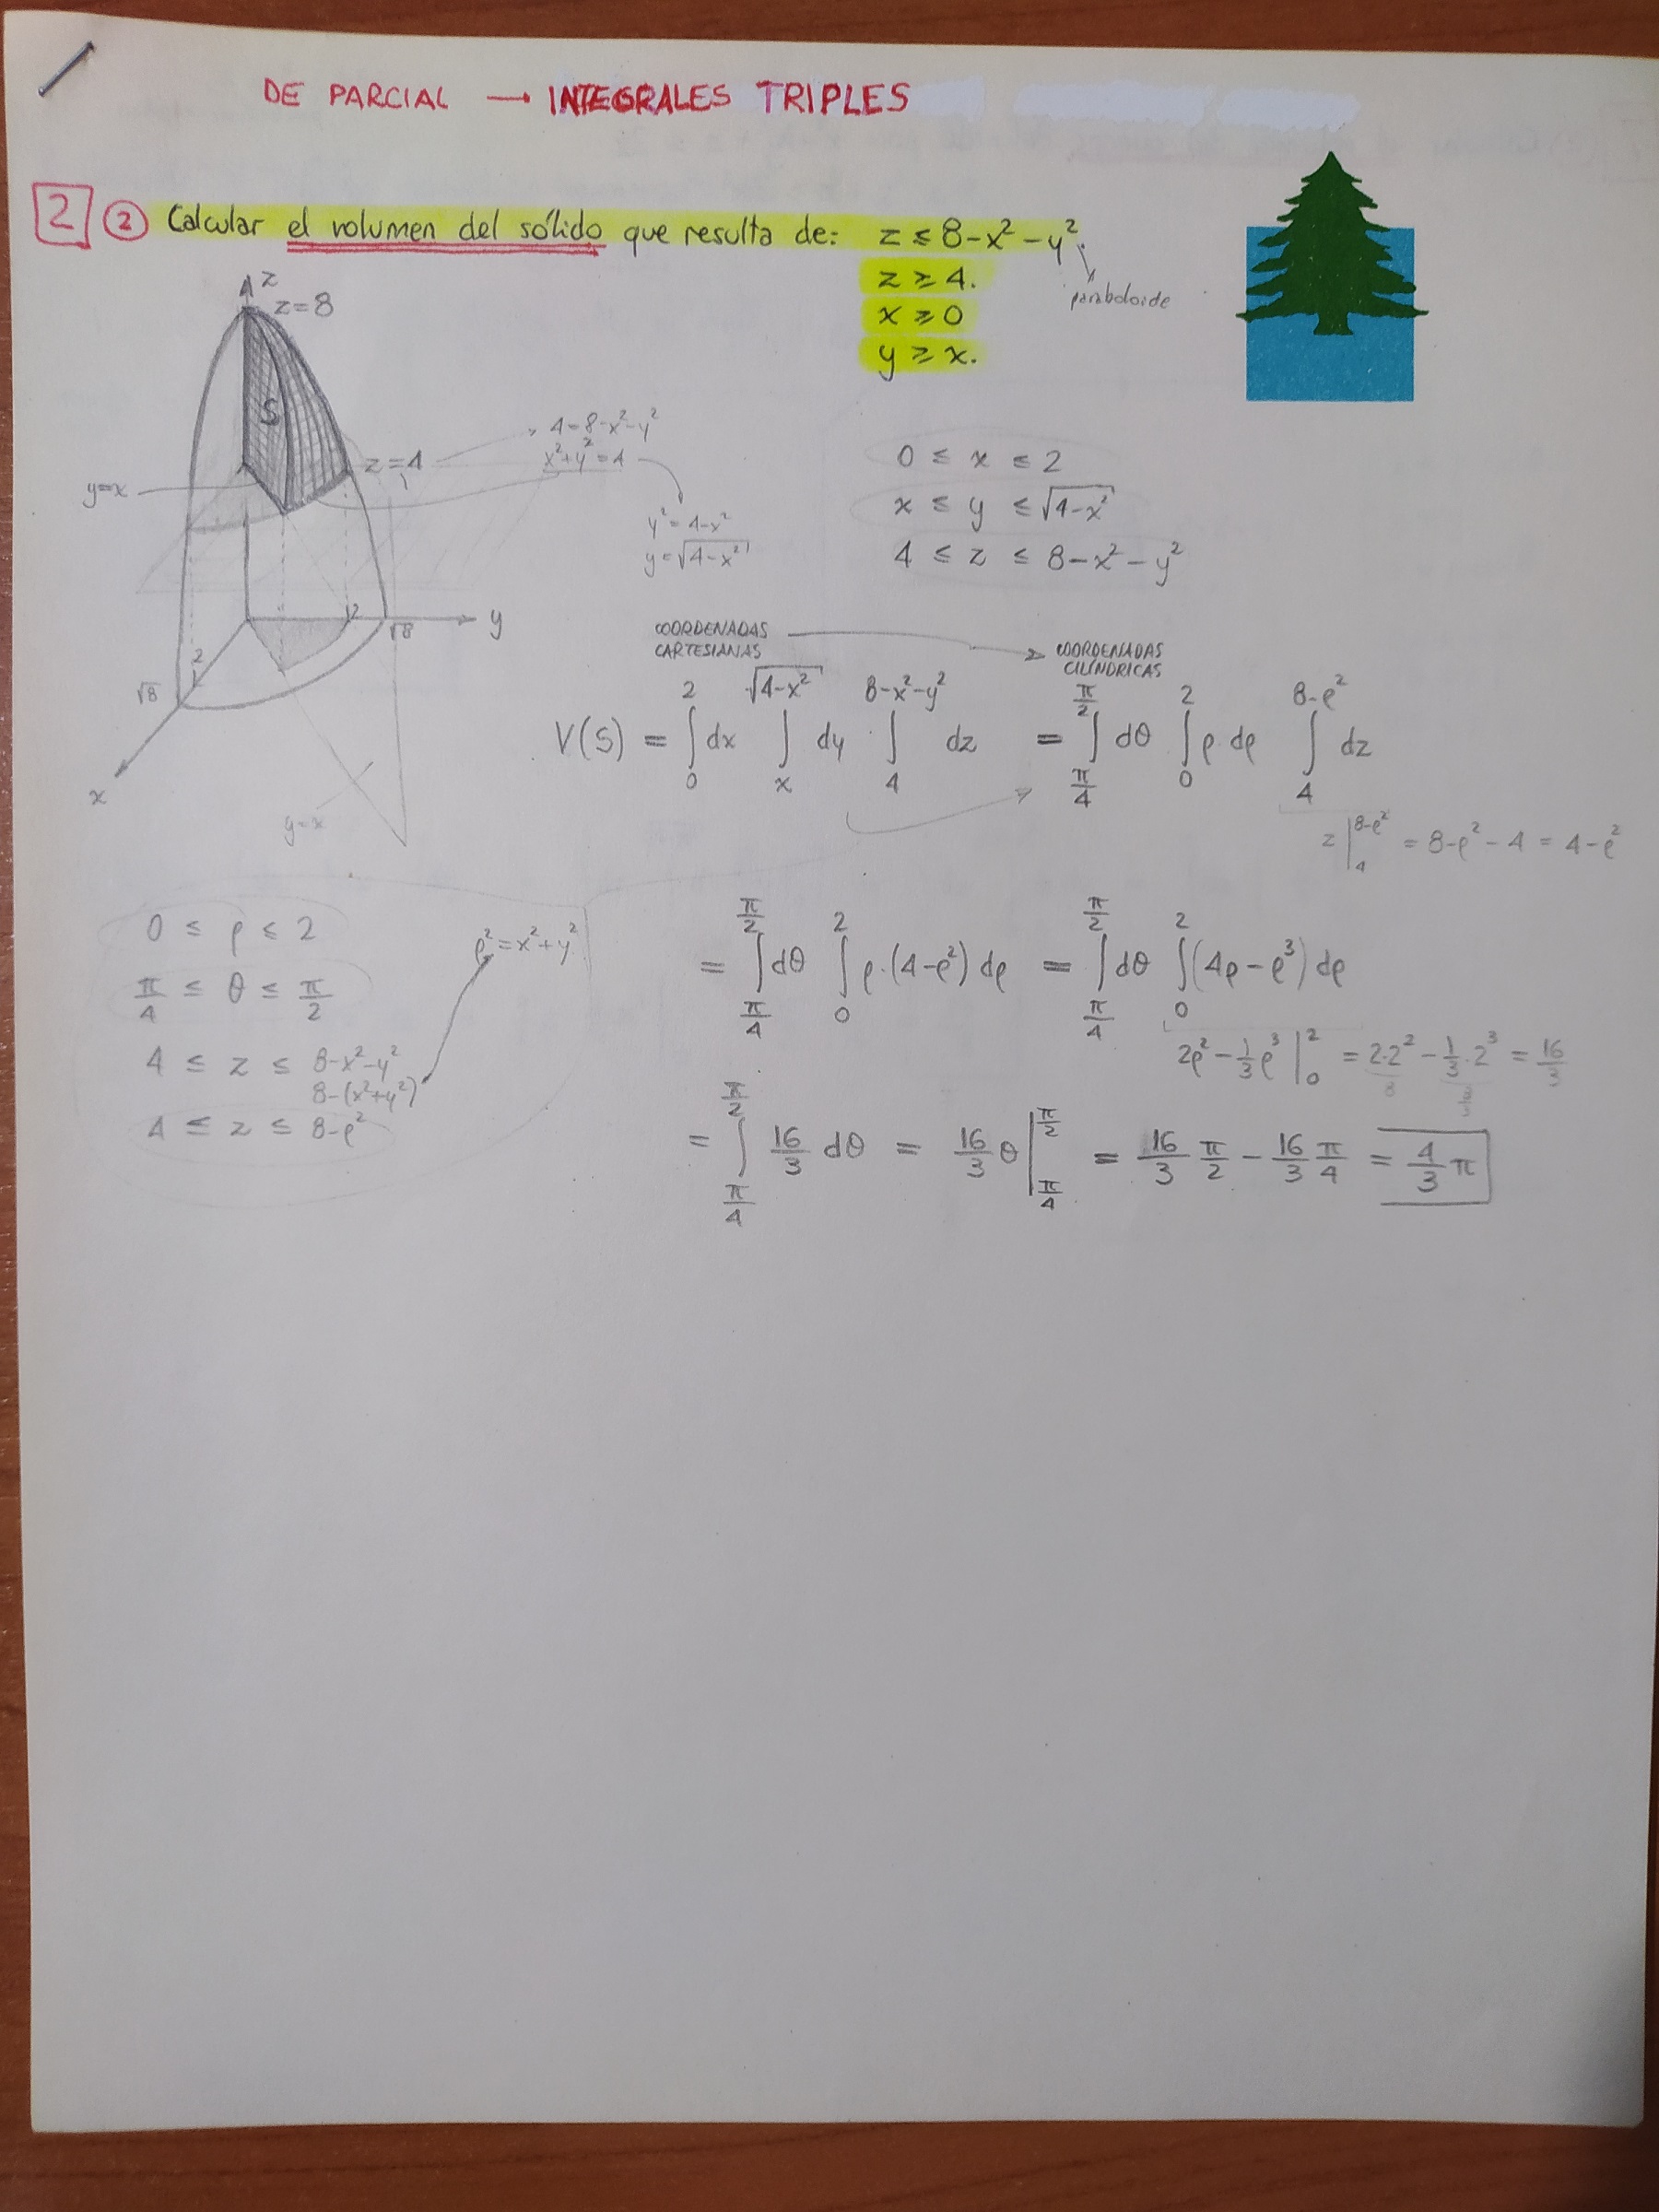 DE PARCIAL → INTEGRALES TRIPLES
2 ② Calcular el volumen del sólido que resulta de: z ≤ 8-x²-y².
z ≥ 4.
x ≥ 0
y ≥ x.
paraboloide
z
z=8
S
z=4
y=x
4=8-x²-y²
x²+y²=4
y²=4-x²
y=√(4-x²)
0 ≤ x ≤ 2
x ≤ y ≤ √(4-x²)
4 ≤ z ≤ 8-x²-y²
2
√8
y
2
√8
x
y=x
COORDENADAS CARTESIANAS → COORDENADAS CILÍNDRICAS
V(S) = ∫₀² dx ∫ₓ^√(4-x²) dy ∫₄^(8-x²-y²) dz = ∫_(π/4)^(π/2) dθ ∫₀² ρ·dρ ∫₄^(8-ρ²) dz
z|₄^(8-ρ²) = 8-ρ²-4 = 4-ρ²
0 ≤ ρ ≤ 2
π/4 ≤ θ ≤ π/2
4 ≤ z ≤ 8-x²-y²
8-(x²+y²)
4 ≤ z ≤ 8-ρ²
ρ²=x²+y²
= ∫_(π/4)^(π/2) dθ ∫₀² ρ·(4-ρ²) dρ = ∫_(π/4)^(π/2) dθ ∫₀² (4ρ-ρ³) dρ
2ρ² - 1/3 ρ³ |₀² = 2·2² - 1/3·2³ = 16/3
8 8/3
= ∫_(π/4)^(π/2) 16/3 dθ = 16/3 θ |_(π/4)^(π/2) = 16/3 π/2 - 16/3 π/4 = 4/3 π